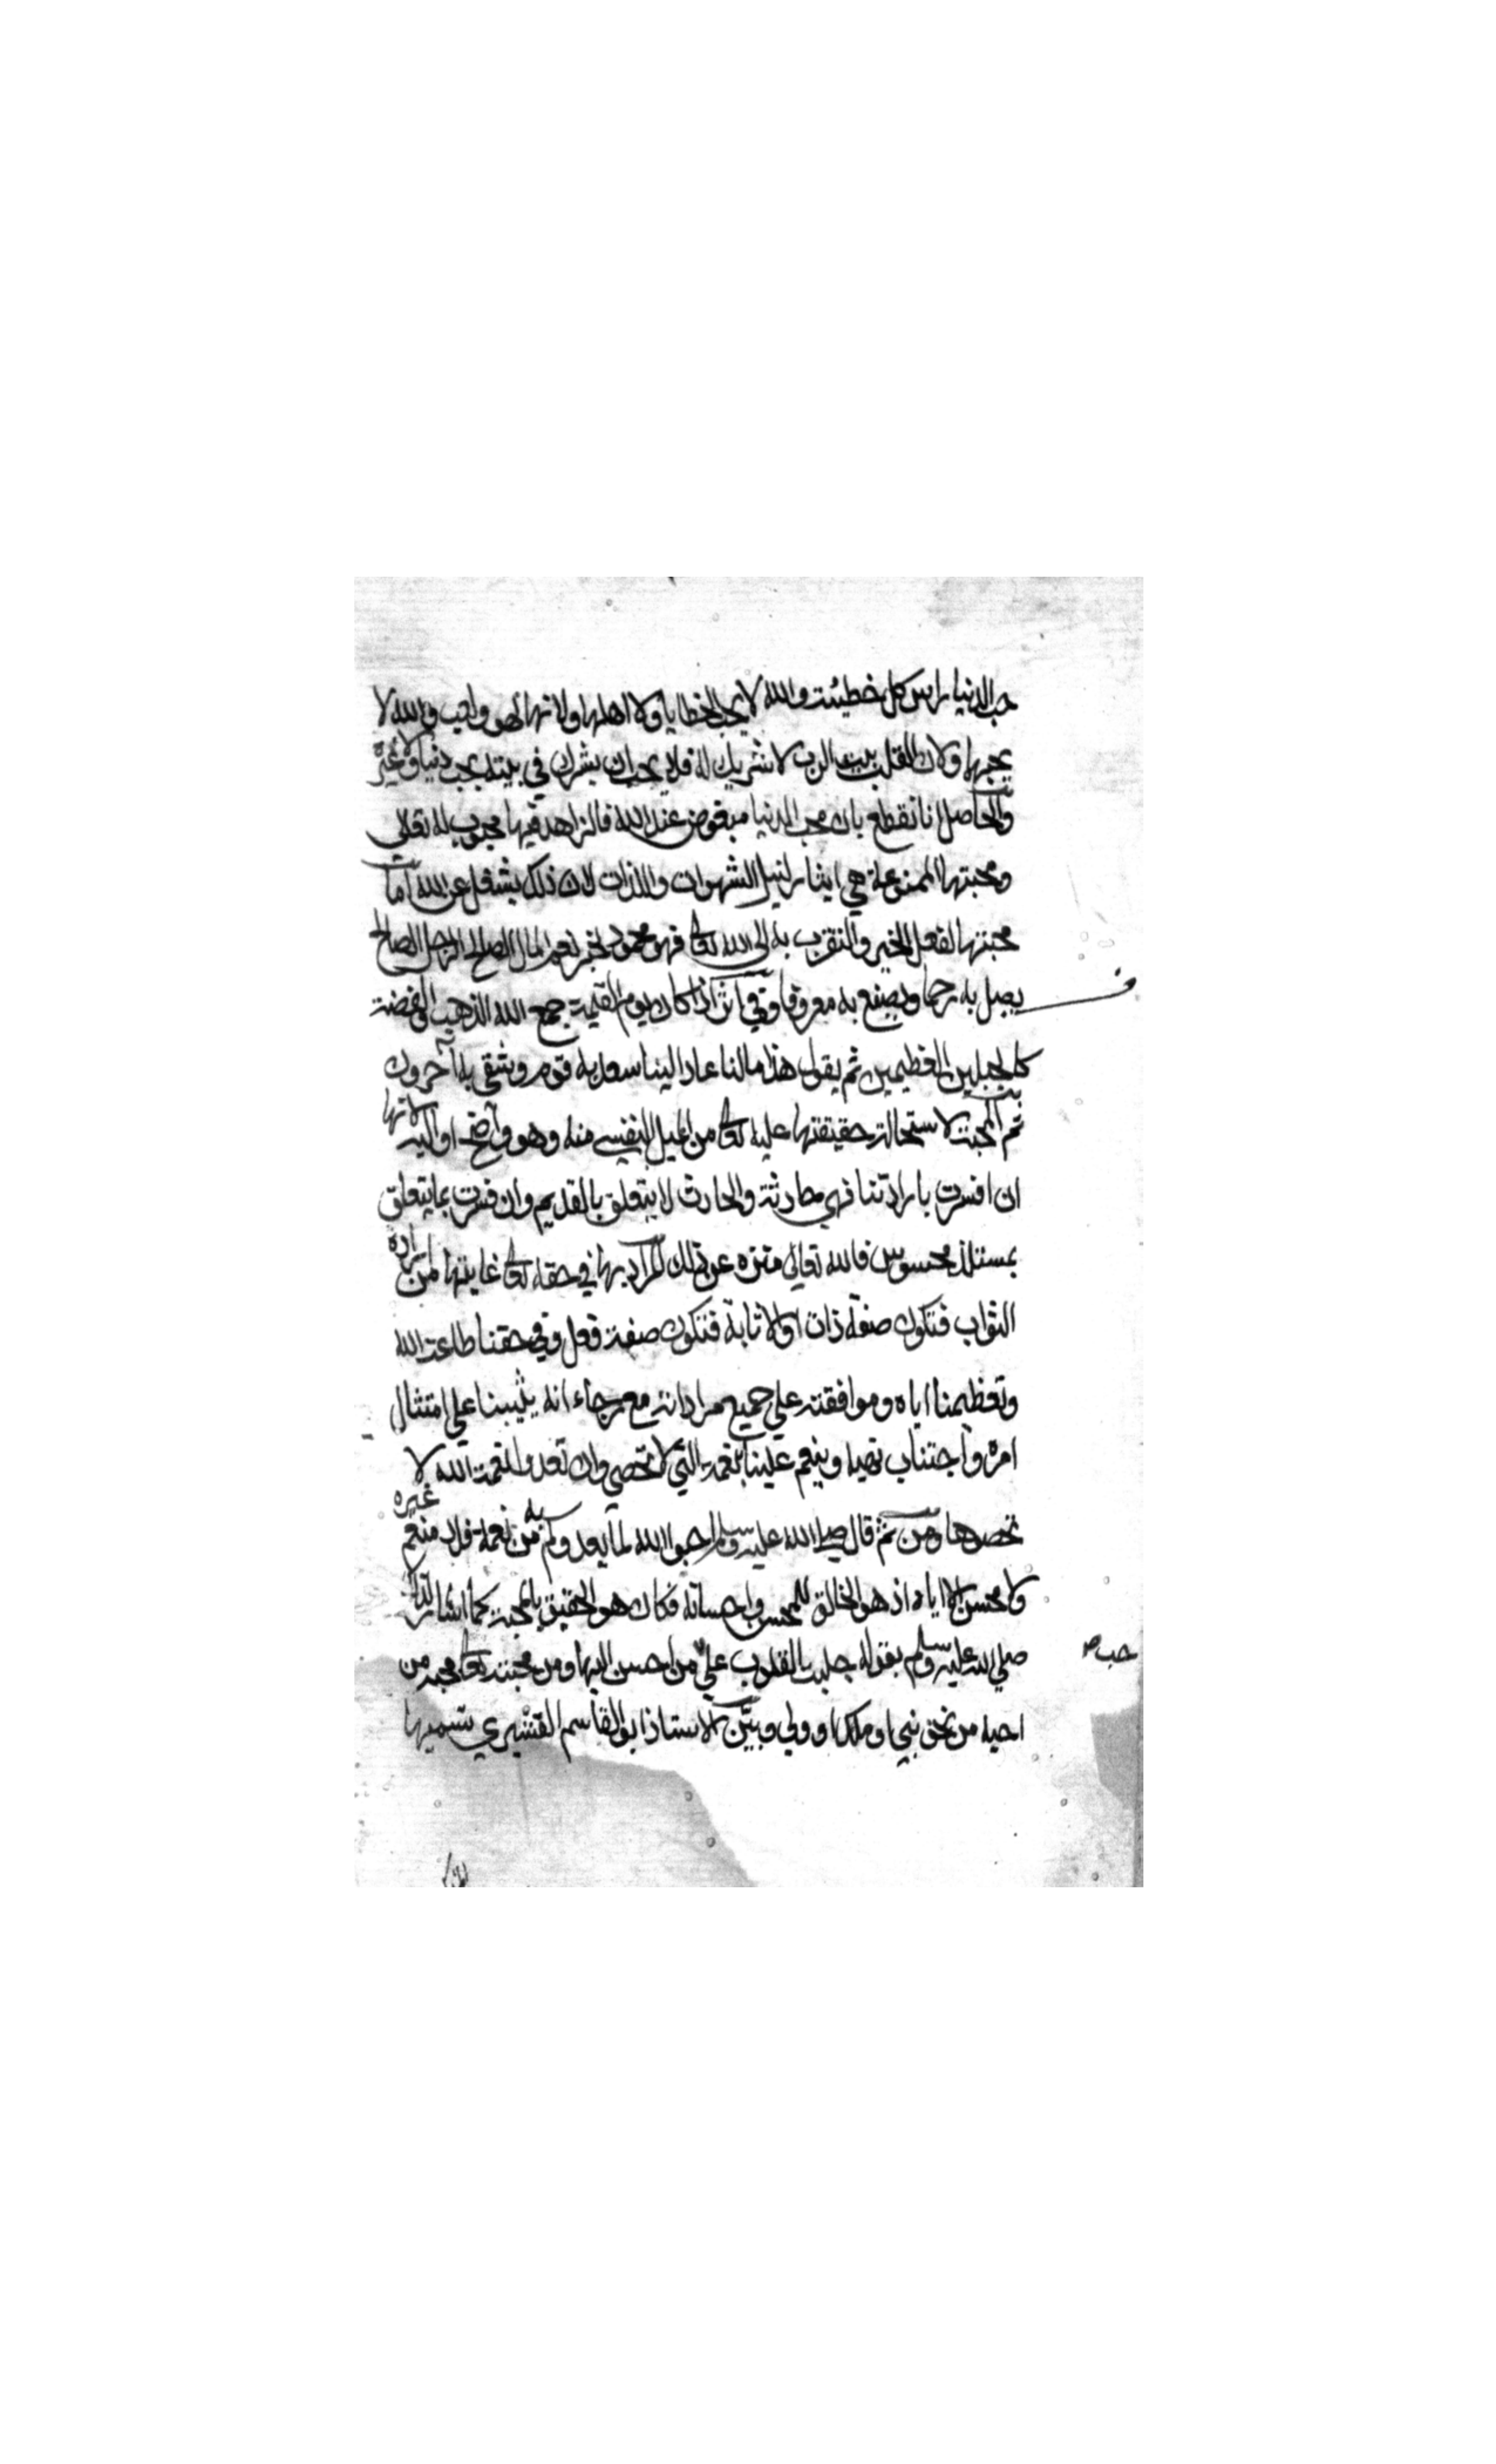 حب الدنيا راس كل خطيئة والله لا يحب الخطايا ولا اهلها ولانها لهو ولعب والله لا
يحبها ولان القلب بيت الرب لا شريك له فلا يحب ان يشرك في بيته بحب دنيا ولا غيره
والحاصل انا نقطع بان محب الدنيا مبغوض عند الله فالزاهد فيها محبوب له تعالى
ومحبتها الممنوعة هي ايثار لنيل الشهوات واللذات لان ذلك يشغل عن الله اما
محبتها لفعل الخير والتقرب به الى الله تعالى فهو محمود لخبر نعم المال الصالح الرجل الصالح
يصل به رحما ويصنع به معروفا وفي اثر اذا كان يوم القيمة جمع الله الذهب والفضة
كالجبلين العظيمين ثم يقول هذا مالنا عاد الينا سعد به قوم وشقي به آخرون
ثم المحبة لاستحالة حقيقتها عليه تعالى من الميل النفسي منه وهو واضح او اليه لانها
ان افسرت بارادتنا فهي حادثة والحادث لا يتعلق بالقديم وان فسرت بما يتعلق
بمستلذ محسوس فالله تعالى منزه عن ذلك المراد بها في حقه تعالى غايتها من ارادة
الثواب فتكون صفة ذات او الاثابة فتكون صفة فعل وفي حقنا طاعة الله
وتعظيمنا اياه وموافقته علي جميع مراداته مع رجاء انه يثيبنا علي امتثال
امره واجتناب نهيه وينعم علينا بنعمه التي لا تحصي وان تعدوا نعمت الله لا
تحصوها ومن ثم قال صلى الله عليه وسلم احبوا الله لما يغدوكم به من نعمة فلا منعم غيره
ولا محسن الا اياه اذ هو الخالق للمحسن واحسانه فكان هو الحقيق بالمحبة كما اشار لذلك
صلي الله عليه وسلم بقوله جبلت القلوب علي من احسن اليها ومن محبته تعالى محبة من
حب صح
احبه من نحو نبي او ملك او ولي وبين الاستاذ ابو القاسم القشيري تسميها